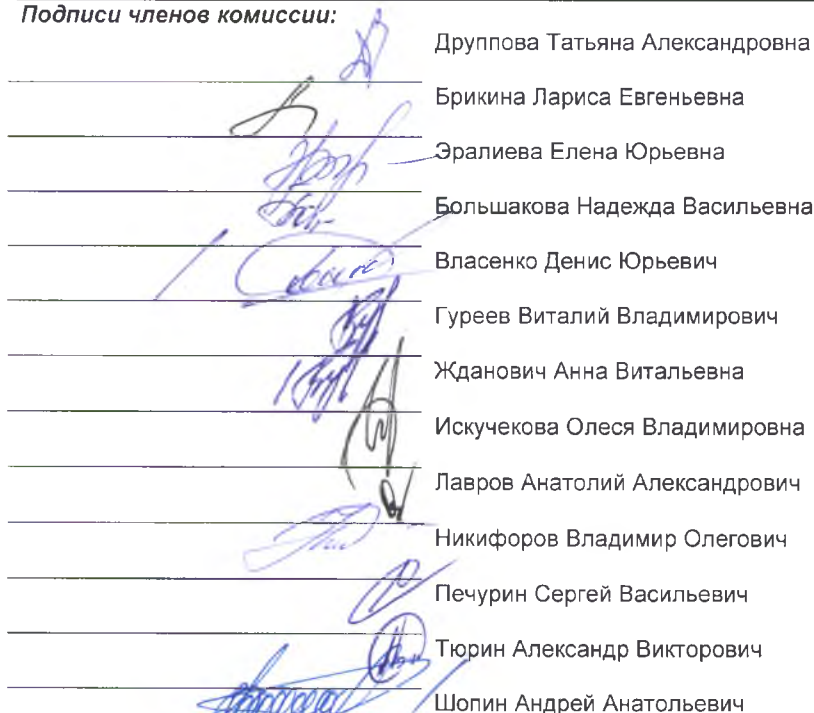 Подписи членов комиссии:
Друппова Татьяна Александровна
Брикина Лариса Евгеньевна
Эралиева Елена Юрьевна
Большакова Надежда Васильевна
Власенко Денис Юрьевич
Гуреев Виталий Владимирович
Жданович Анна Витальевна
Искучекова Олеся Владимировна
Лавров Анатолий Александрович
Никифоров Владимир Олегович
Печурин Сергей Васильевич
Тюрин Александр Викторович
Шопин Андрей Анатольевич